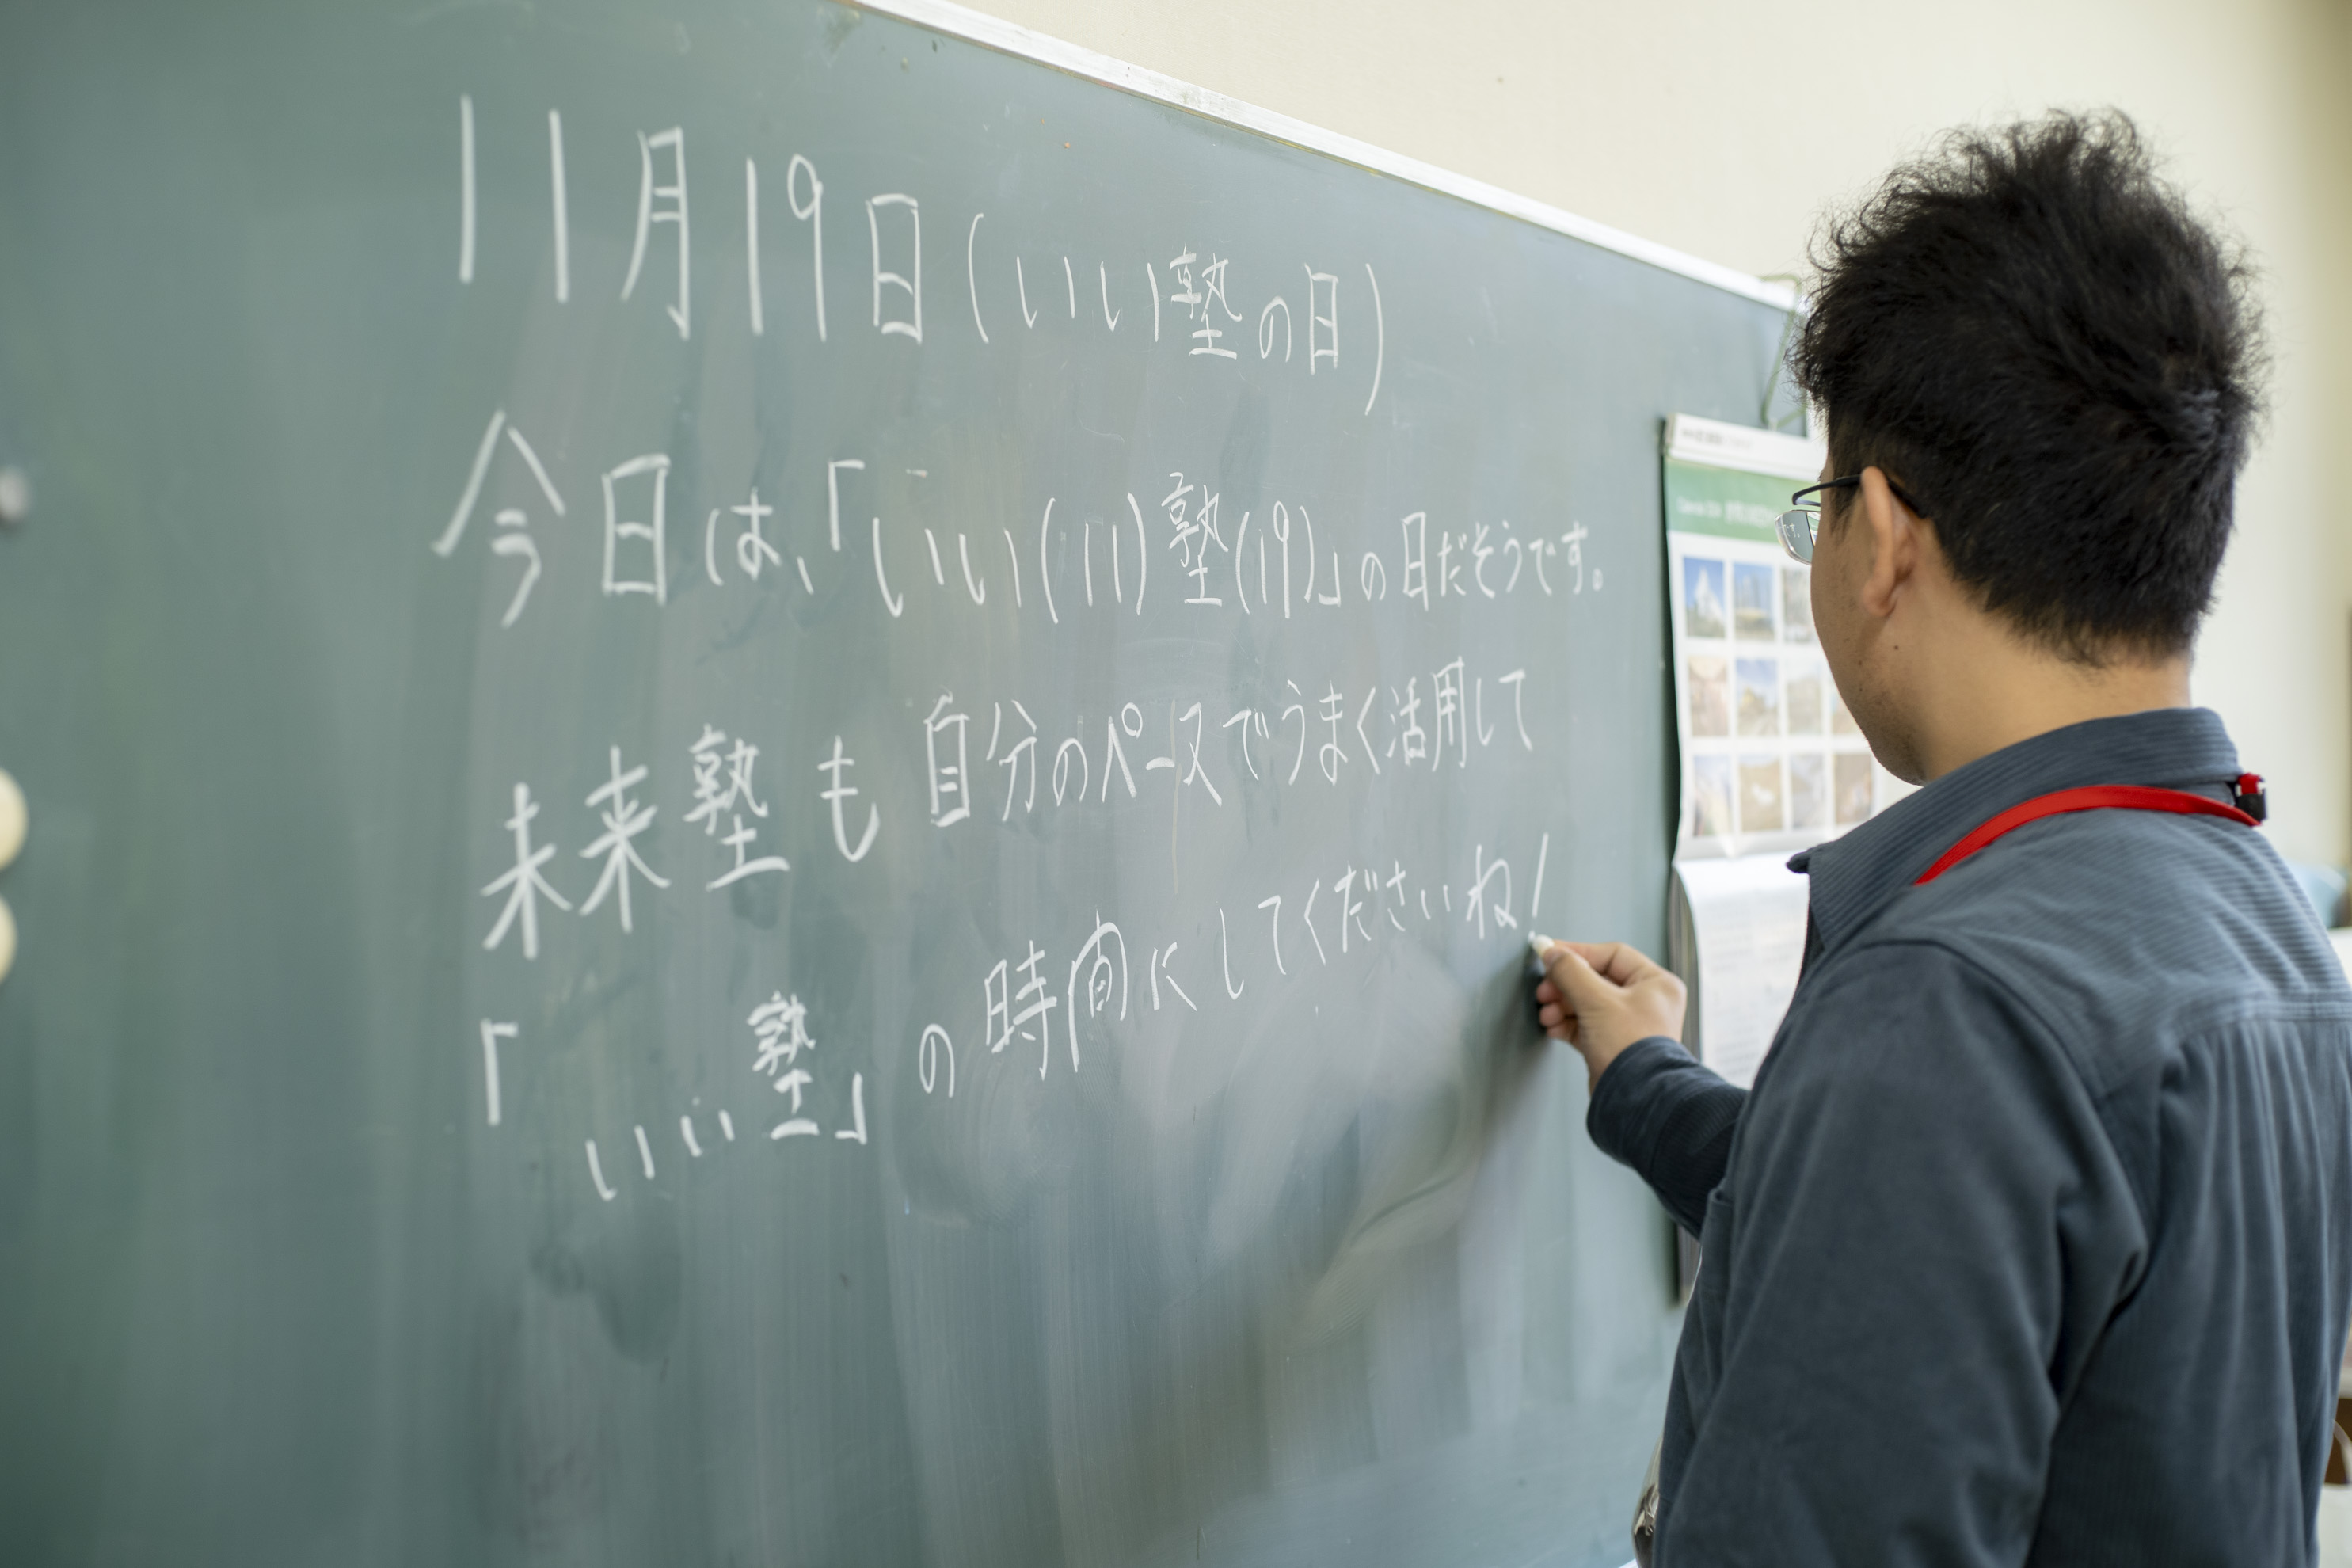 11月19日(いい塾の日)
今日は、「いい(11)塾(19)」の日だそうです。
未来塾も自分のペースでうまく活用して
「いい塾」の時間にしてくださいね!